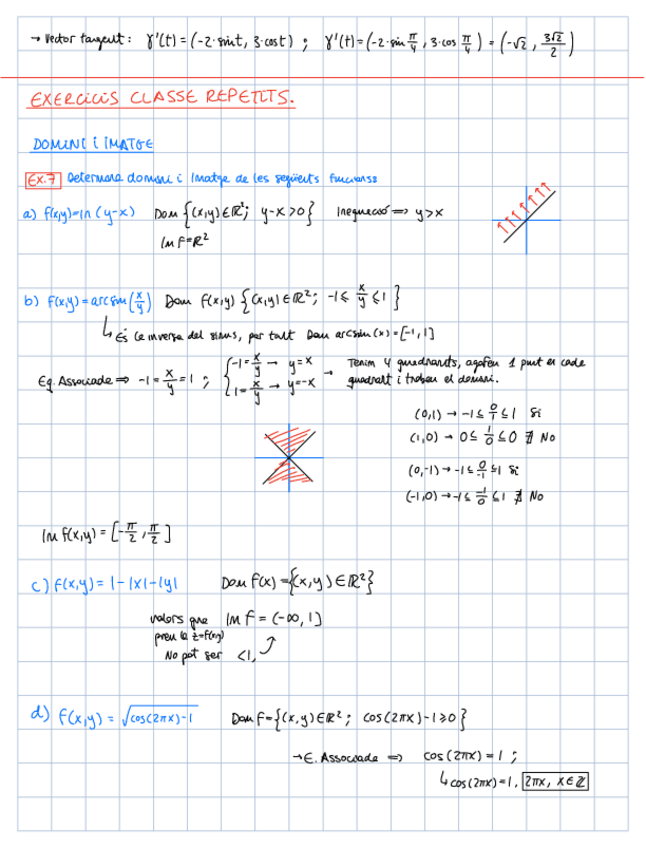 → Vector tangent: γ'(t) = (-2·sint, 3·cost) ; γ'(t) = (-2·sin π/4, 3·cos π/4) = (-√2, 3√2/2)
EXERCICIS CLASSE REPETITS.
DOMINI I IMATGE
EX.7 Determina domini i Imatge de les següents funcions
a) f(x,y)=ln(y-x) Dom {(x,y)∈ℝ²; y-x>0} Inequació ⇒ y>x
Im F=ℝ²
b) F(x,y)=arcsin(x/y) Dom f(x,y) {(x,y)∈ℝ²; -1≤ x/y ≤1}
↳ És la inversa del sinus, per tant Dom arcsin(x)=[-1,1]
Eq. Associada ⇒ -1 = x/y = 1 ; { -1 = x/y → y=x
1 = x/y → y=-x
→ Tenim 4 quadrants, agafem 1 punt en cada
quadrant i trobem el domini.
(0,1) → -1 ≤ 0/1 ≤ 1 Si
(1,0) → 0 ≤ 1/0 ≤ 0 ∄ No
(0,-1) → -1 ≤ 0/-1 ≤ 1 Si
(-1,0) → -1 ≤ -1/0 ≤ 1 ∄ No
Im f(x,y) = [-π/2, π/2]
c) F(x,y) = 1-|x|-|y| Dom F(x) = {(x,y)∈ℝ²}
valors que Im F = (-∞, 1]
preu la z=f(x,y)
No pot ser <1,
d) F(x,y) = √cos(2πx)-1 Dom F={(x,y)∈ℝ²; cos(2πx)-1≥0}
→ E. Associada ⇒ cos(2πx) = 1 ;
↳ cos(2πx)=1, 2πx, x∈ℤ